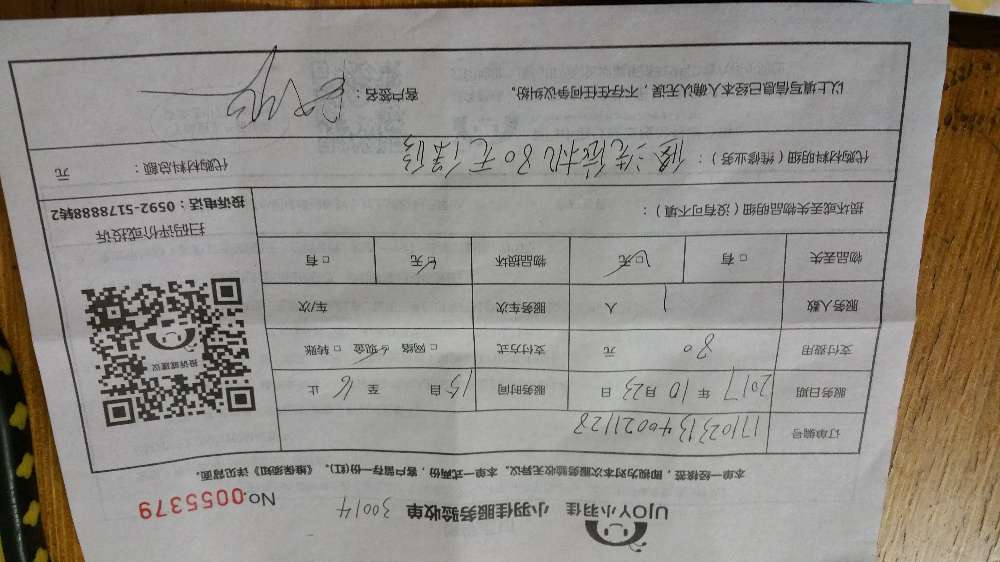 UJOY小羽佳 小羽佳服务验收单 30014 No.0055379
本单一经接签,即视为对本次服务验收无异议。本单一式两份,客户留存一份(红)。《维保须知》详见背面。
订单编号 1710231340021128
服务日期 2017 年 10 月 23 日 服务时间 15 自 至 16 止
支付费用 80 元 支付方式 □ 网络 ☑ 现金 □ 转账
服务人数 1 人 服务车次 车/次
物品丢失 □ 有 ☑ 无 物品损坏 ☑ 无 □ 有
损坏或丢失物品明细(没有可不填):
投诉建议
扫码评价或投诉
投诉电话:0592-5178888转2
代购材料明细(维修业务): 修洗衣机80元 代购材料总额: 元
以上填写信息已经本人确认无误,不存在任何争议纠纷。 客户签名: